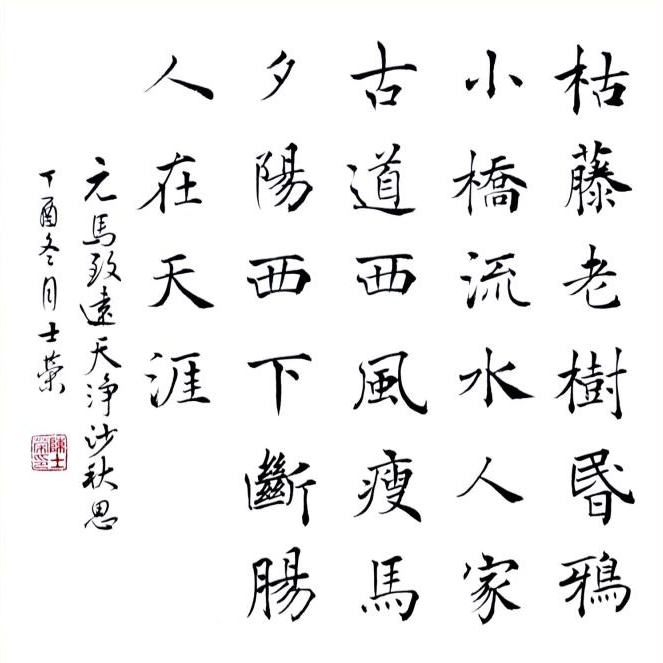 枯藤老樹昏鴉
小橋流水人家
古道西風瘦馬
夕陽西下斷腸
人在天涯
元馬致遠天淨沙秋思
丁酉冬月士榮
陳士榮印